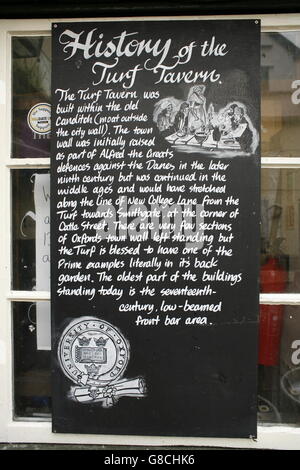 History of the
Turf Tavern.
The Turf Tavern was
built within the old
Canditch (moat outside
the city wall). The town
wall was initially raised
as part of Alfred the Great's
defences against the Danes in the later
ninth century but was continued in the
middle ages and would have stretched
along the line of New College Lane from the
Turf towards Smithgate, at the corner of
Catte Street. There are very few sections
of Oxfords town wall left standing but
the Turf is blessed to have one of the
Prime examples literally in its back
garden. The oldest part of the buildings
standing today is the seventeenth-
century, low-beamed
front bar area.
UNIVERSITY OF OXFORD
alamy
G8CHK6